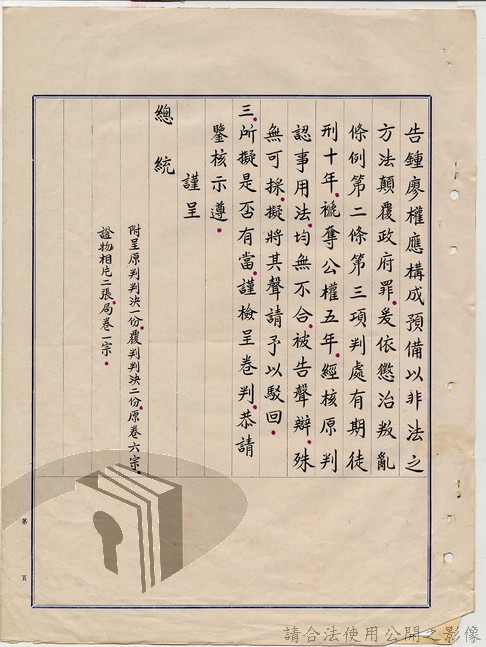 告鍾廖權應構成預備以非法之
方法顛覆政府罪爰依懲治叛亂
條例第二條第三項判處有期徒
刑十年褫奪公權五年經核原判
認事用法均無不合被告聲辯殊
無可採擬將其聲請予以駁回
三所擬是否有當謹檢呈卷判恭請
鑒核示遵
謹呈
總統
附呈原判判決一份覆判判決二份原卷六宗
證物相片二張局卷一宗
第 頁
請合法使用公開之影像